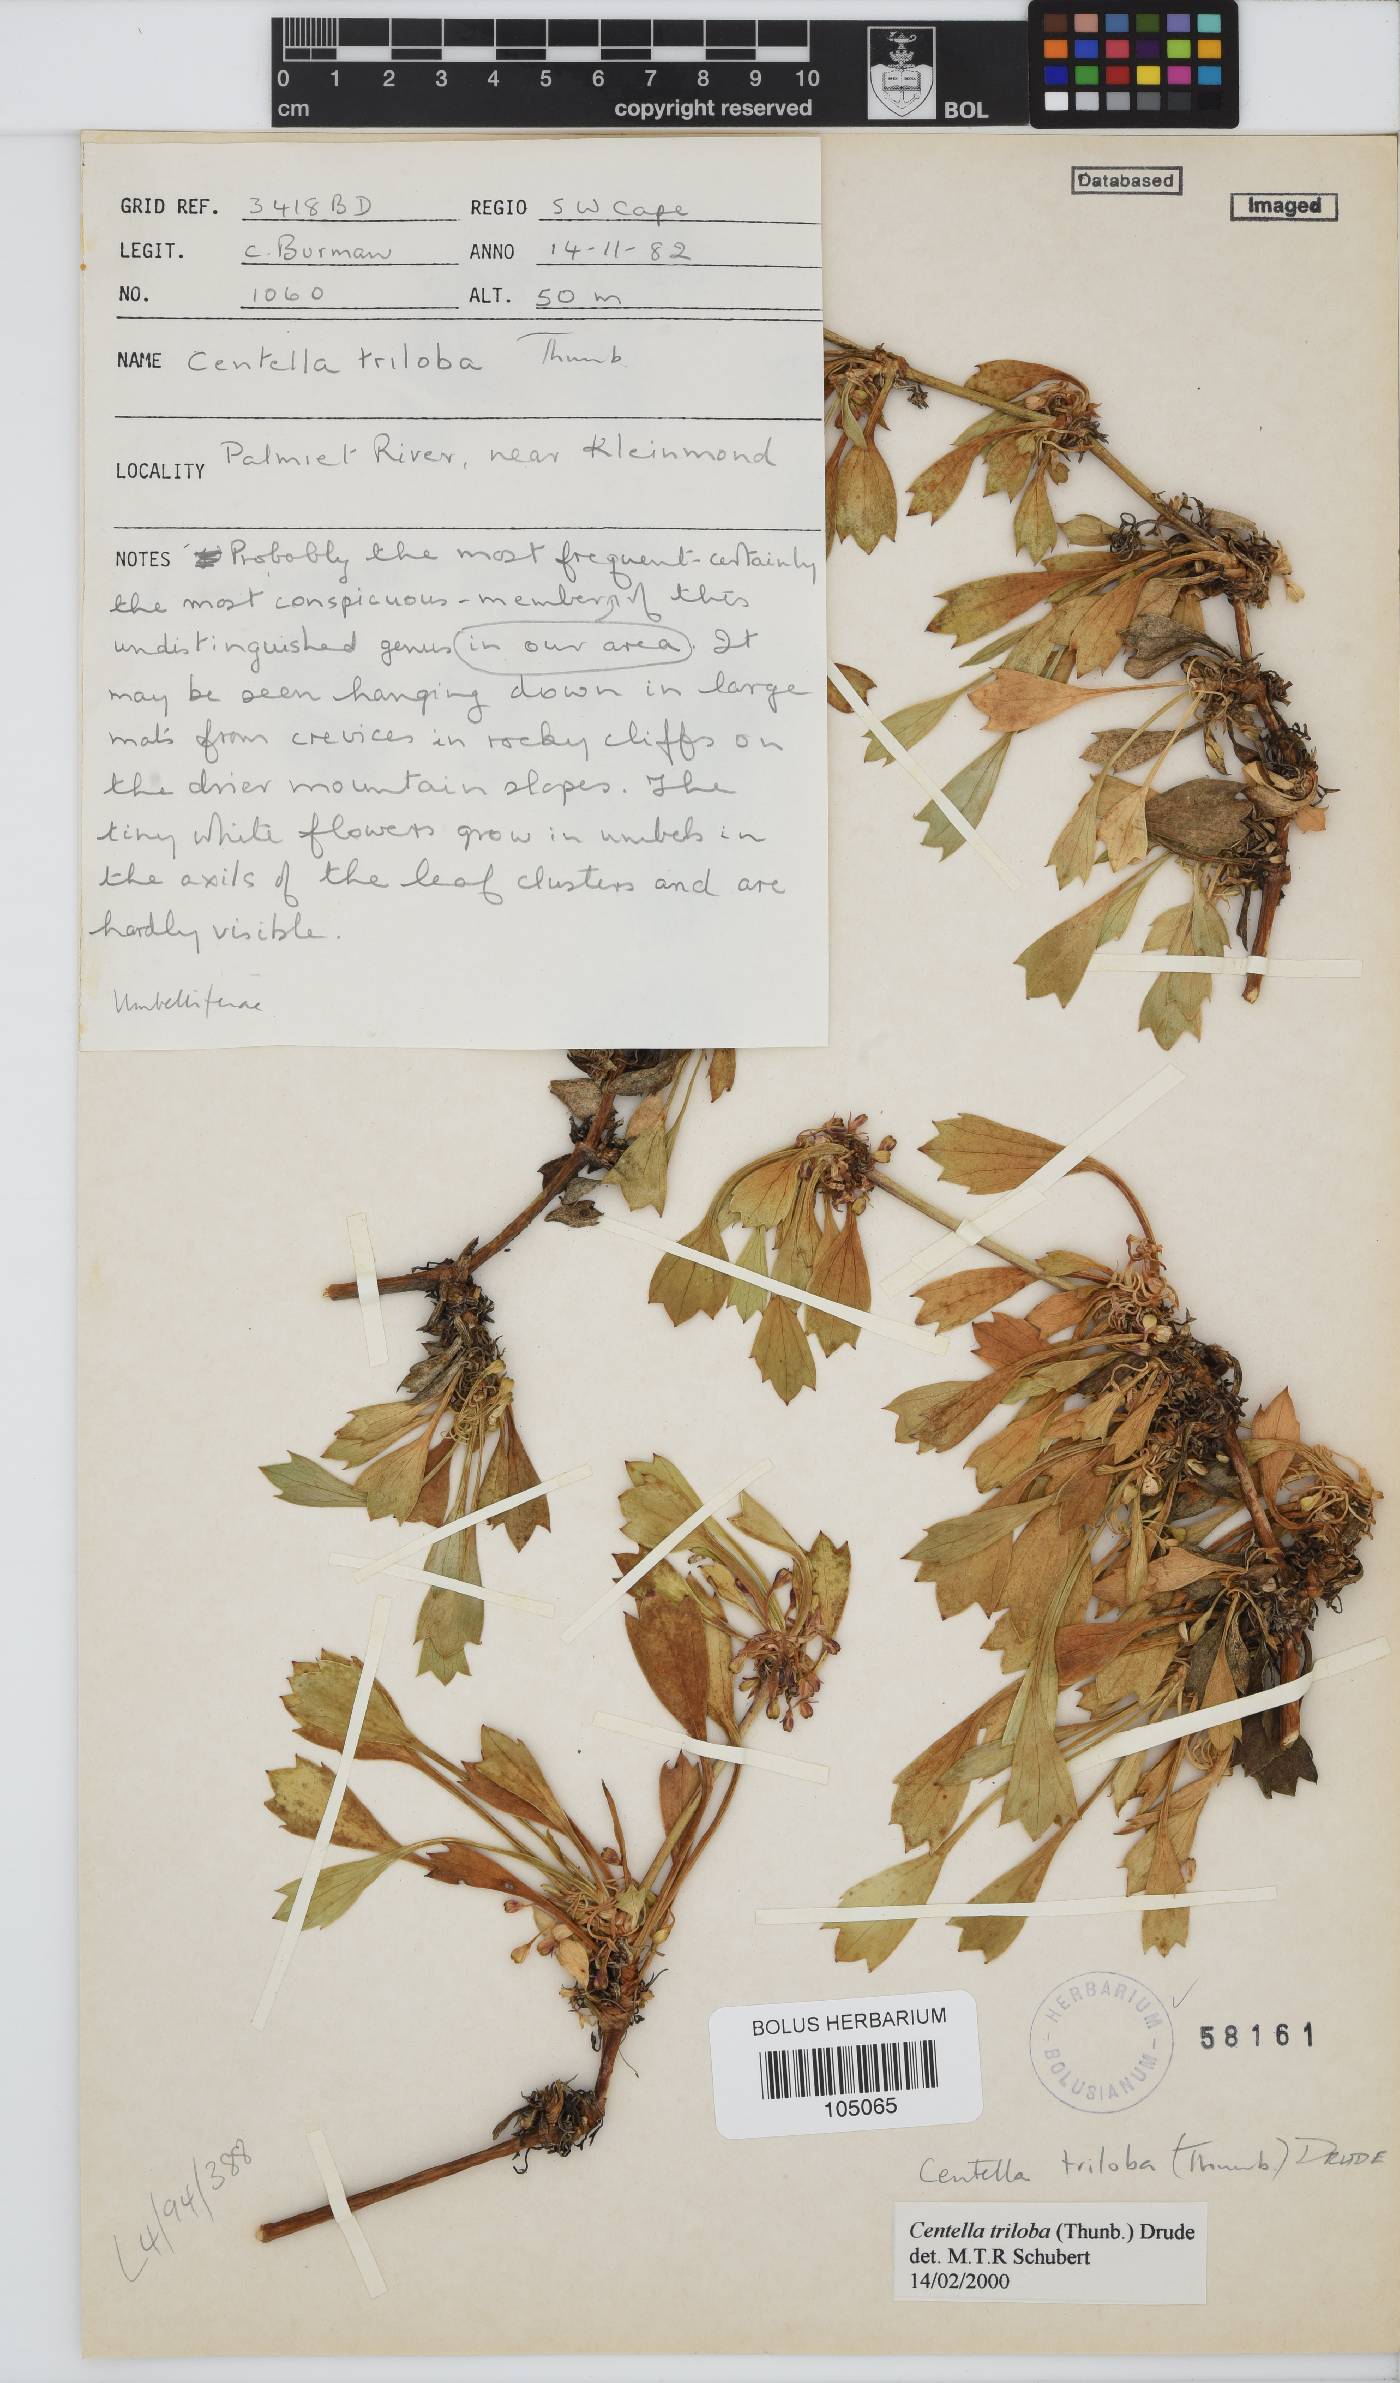 0 1 2 3 4 5 6 7 8 9 10
cm copyright reserved BOL
Databased
Imaged
GRID REF. 3418BD REGIO SW Cape
LEGIT. C. Burman ANNO 14-11-82
NO. 1060 ALT. 50 m
NAME Centella triloba Thunb.
LOCALITY Palmiet River, near Kleinmond
NOTES Probably the most frequent - certainly
the most conspicuous - member of this
undistinguished genus in our area. It
may be seen hanging down in large
mats from crevices in rocky cliffs on
the drier mountain slopes. The
tiny white flowers grow in umbels in
the axils of the leaf clusters and are
hardly visible.
Umbelliferae
HERBARIUM BOLUSIANUM
58161
BOLUS HERBARIUM
105065
L4/94/388
Centella triloba (Thunb.) DRUDE
Centella triloba (Thunb.) Drude
det. M.T.R Schubert
14/02/2000